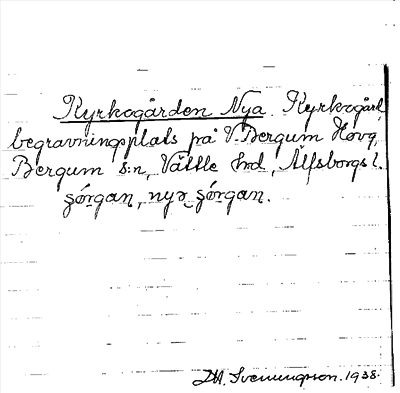 Kyrkogården Nya. Kyrkogård,
begravningsplats på V. Bergum Hovg,
Bergum s:n, Vättle hrd, Älfsborgs l.
şórgan, nyə şórgan.
Svenningson. 1938.